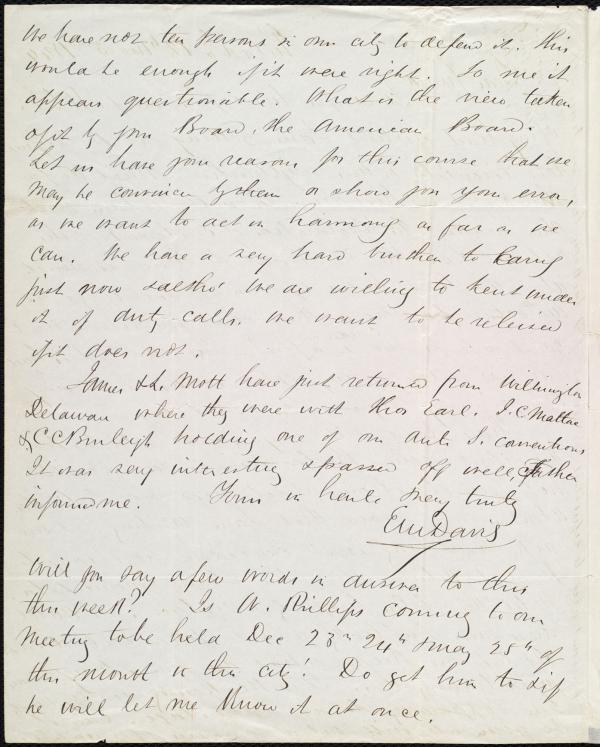 We have not ten persons in our city to defend it. This
would be enough if it were right. To me it
appears questionable. What is the view taken
of it by your Board, the American Board.
Let us have your reasons for this course that we
may be convinced by them or show you your error,
as we want to act in harmony as far as we
can. We have a very hard burthen to carry
just now & altho' we are willing to bent under
it if duty calls. we want to be released
if it does not.
James & L. Mott have just returned from Wilmington
Delaware where they were with Thos Earl. J. C.
& C C Burleigh holding one of our Anti S. conventions
It was very interesting & passed off well, Father
informed me. Yours in haste very truly
E M Davis
Will you say a few words in answer to this
this week? Is W. Phillips coming to our
meeting to be held Dec 23rd 24th & may 25th of
this month in this city! Do get him to & if
he will let me know it at once.